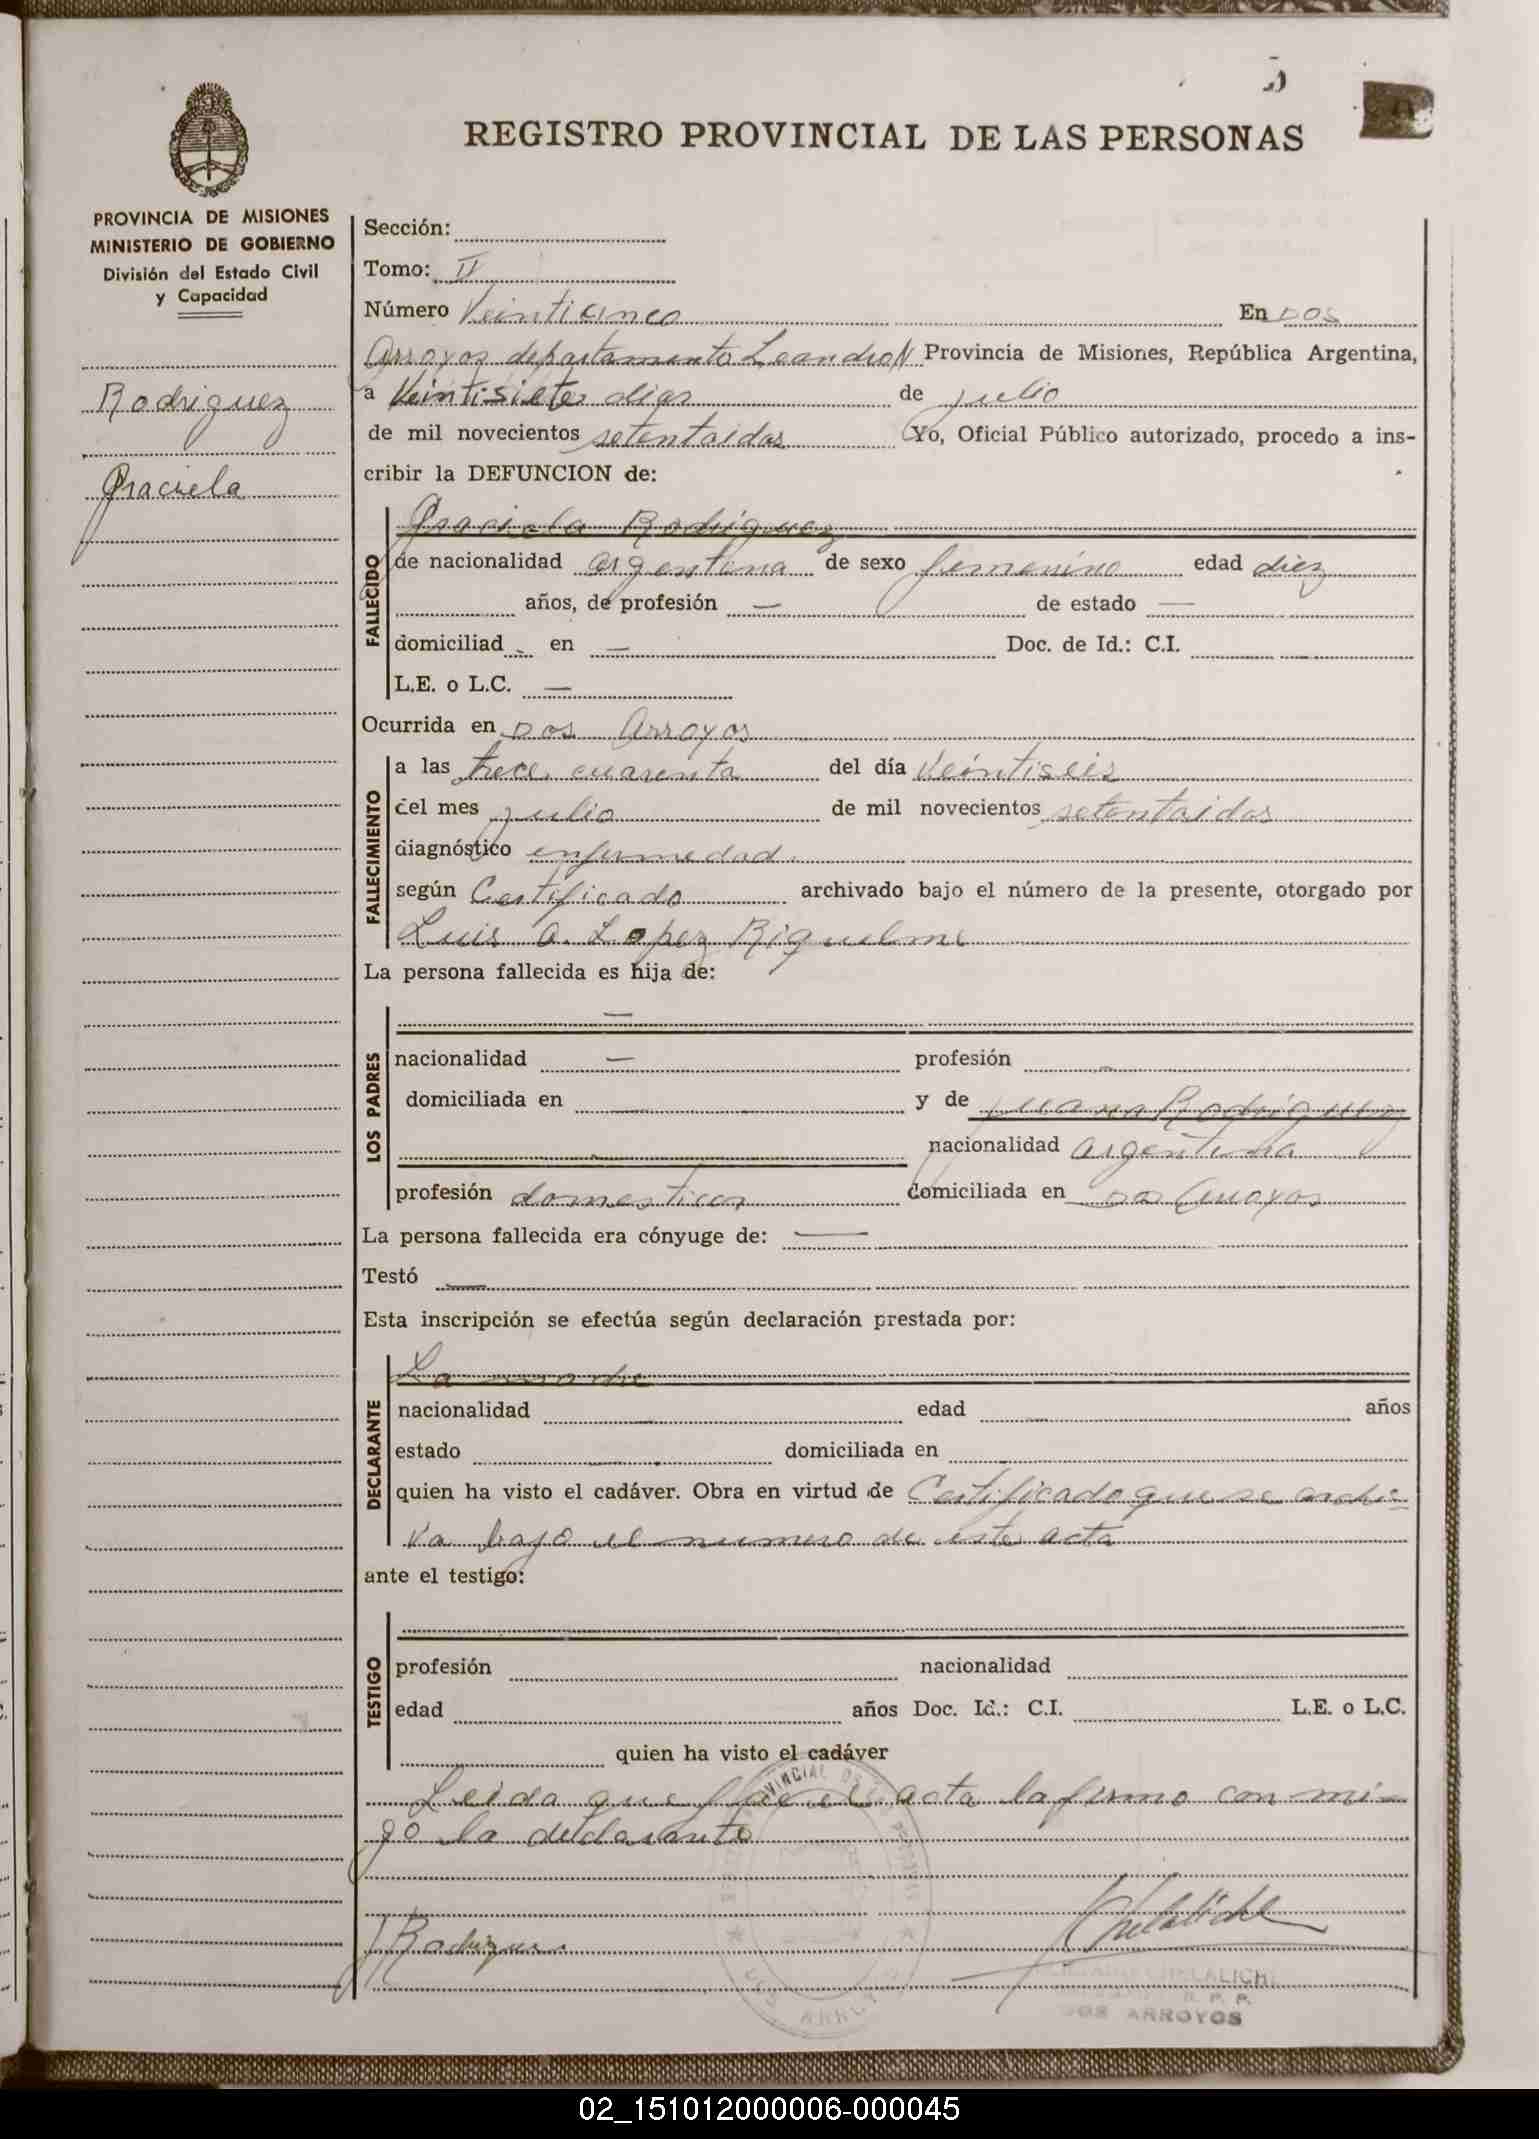 REGISTRO PROVINCIAL DE LAS PERSONAS
PROVINCIA DE MISIONES
MINISTERIO DE GOBIERNO
División del Estado Civil
y Capacidad
Rodriguez
Graciela
Sección:
Tomo: II
Número Veinticinco En Dos
Arroyos departamento Leandro N Provincia de Misiones, República Argentina,
a Veintisiete dias de julio
de mil novecientos setentaidos Yo, Oficial Público autorizado, procedo a ins-
cribir la DEFUNCION de:
Graciela Rodriguez
FALLECIDO
de nacionalidad argentina de sexo femenino edad diez
años, de profesión — de estado —
domiciliad - en — Doc. de Id.: C.I.
L.E. o L.C. —
Ocurrida en Dos Arroyos
FALLECIMIENTO
a las trece cuarenta del día Veintiseis
del mes julio de mil novecientos setentaidos
diagnóstico enfermedad.
según Certificado archivado bajo el número de la presente, otorgado por
Luis A. Lopez Riquelme
La persona fallecida es hija de:
—
LOS PADRES
nacionalidad — profesión -
domiciliada en — y de Juana Rodriguez
— nacionalidad argentina
profesión domesticos domiciliada en Dos Arroyos
La persona fallecida era cónyuge de: —
Testó —
Esta inscripción se efectúa según declaración prestada por:
La madre
DECLARANTE
nacionalidad — edad — años
estado — domiciliada en
quien ha visto el cadáver. Obra en virtud de Certificado que se archi-
va bajo el numero de esta acta
ante el testigo:
TESTIGO
profesión nacionalidad
edad años Doc. Id.: C.I. L.E. o L.C.
quien ha visto el cadáver
Leida que fue el acta la firmo con mi-
go la declarante
J Rodriguez
DOS ARROYOS
02_151012000006-000045